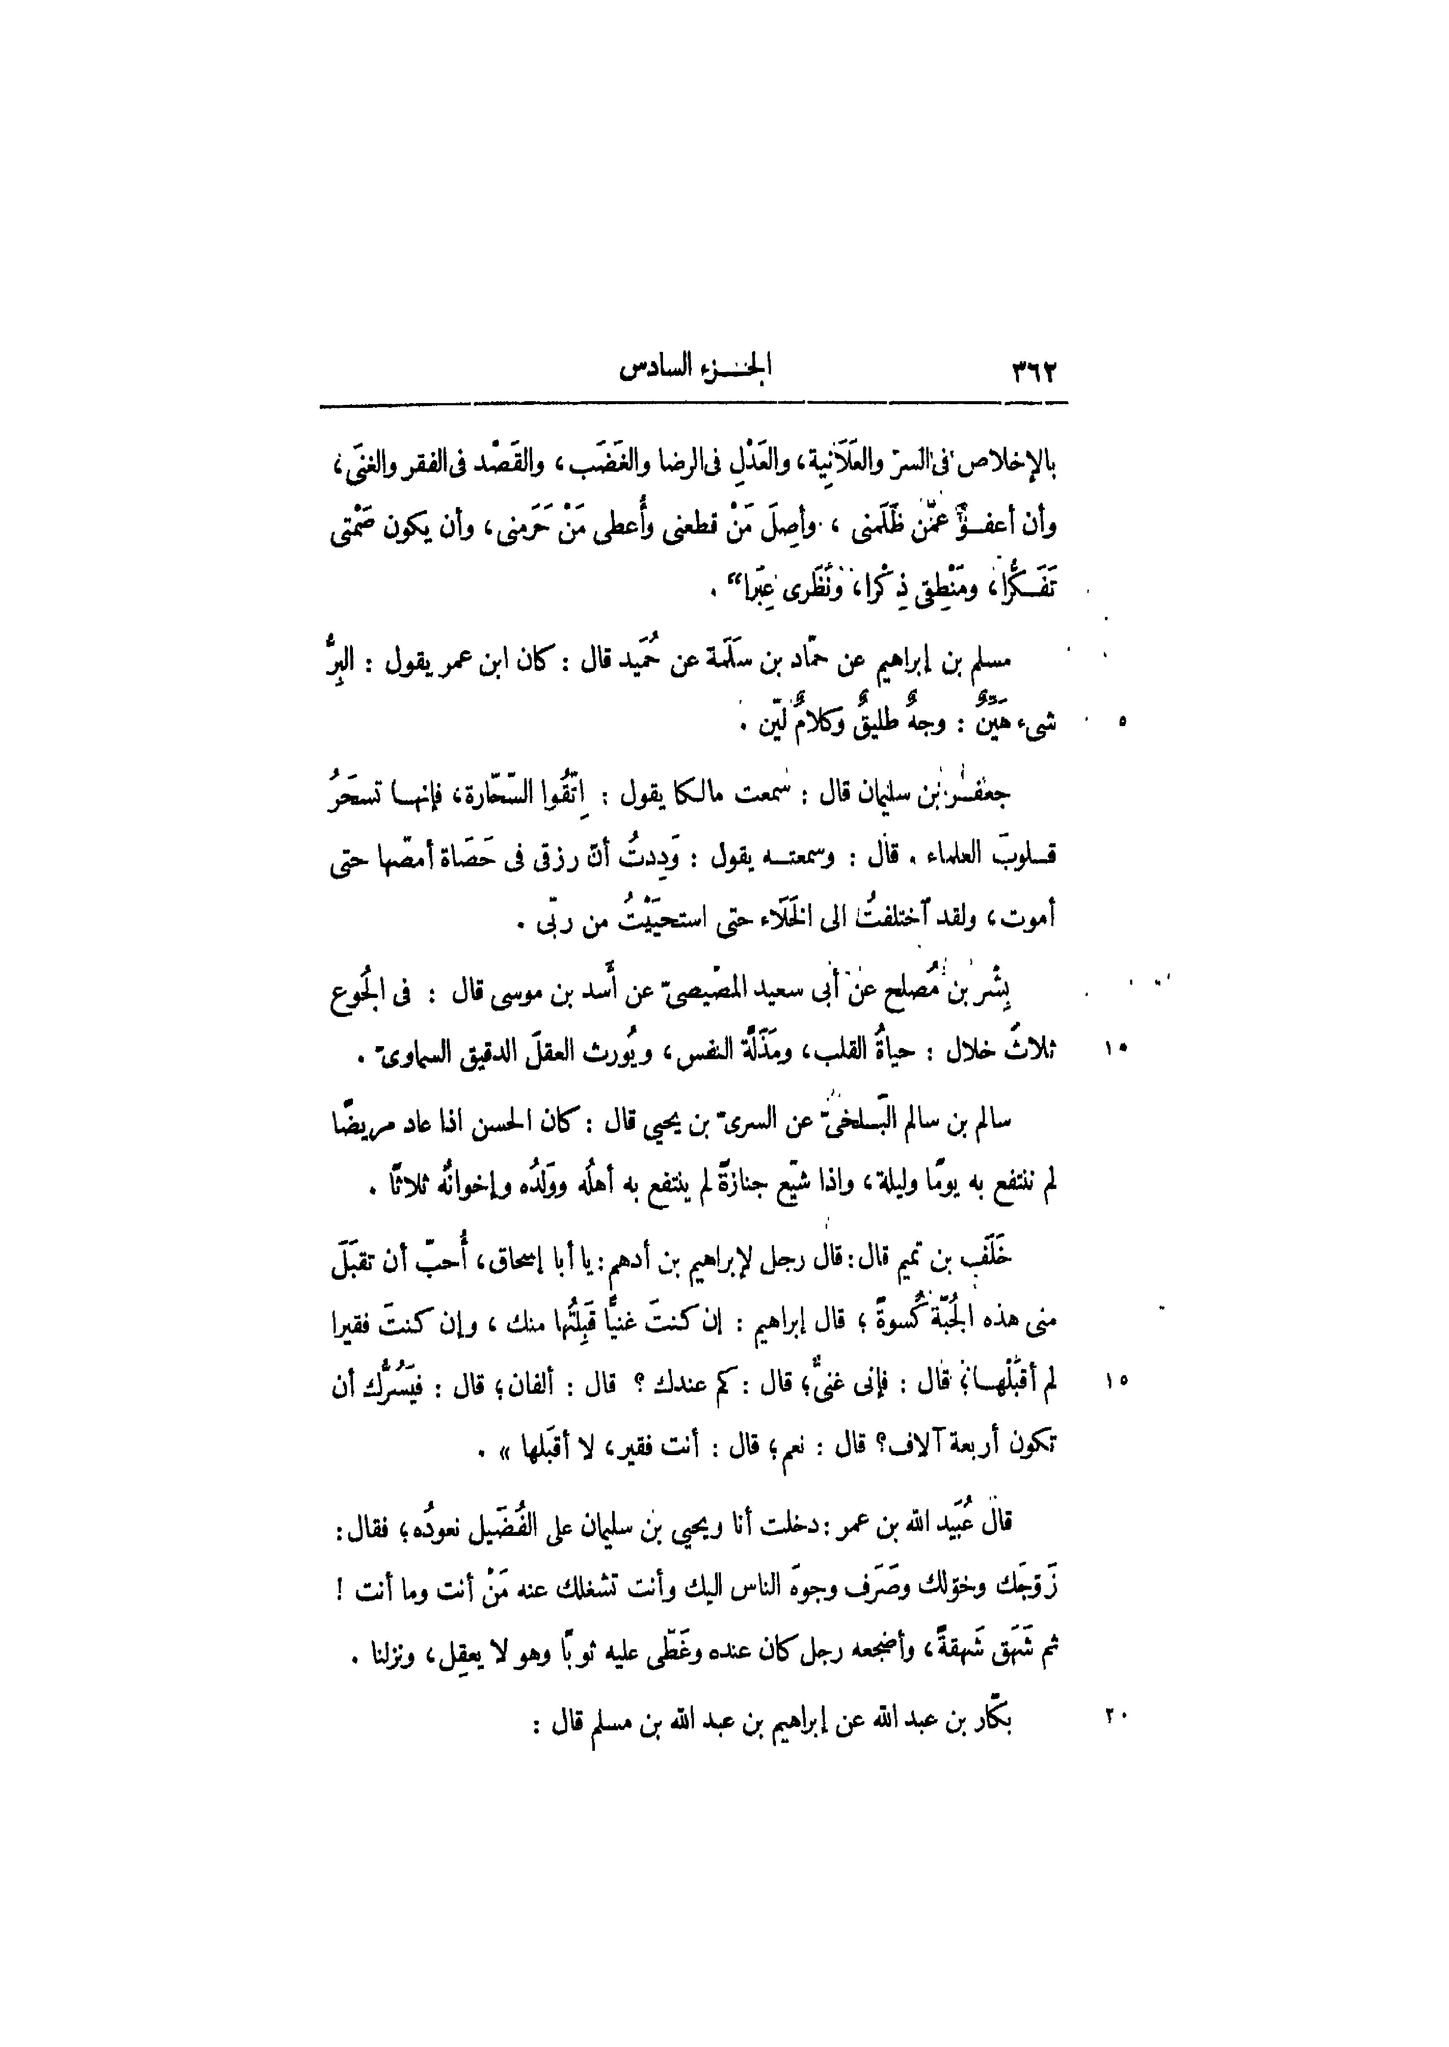 ٣٦٢ الجـزء السادس
بالإخلاص فى السرّ والعَلَانِية، والعَدْلِ فى الرضا والغَضَب، والقَصْد فى الفقر والغنَى،
وأن أعفـوَ عمّن ظَلَمنى ، وأصِلَ مَنْ قطعنى وأُعطى مَنْ حَرَمنى، وأن يكون صَمْتى
تَفَـكُّرا، ومَنْطِقى ذِكْرا، ونَظَرى عِبَرا“ .
مسلم بن إبراهيم عن حمّاد بن سَلَمة عن حُمَيد قال : كان ابن عمر يقول : البِرُّ
٥ شىء هَيِّنٌ : وجهٌ طليقٌ وكلامٌ ليّن .
جعفـر بن سليمان قال : سمعت مالكا يقول : اِتّقُوا السّحّارة، فإنهـا تسحَرُ
قـلوبَ العلماء . قال : وسمعتـه يقول : وَدِدتُ أنّ رزقى فى حَصَاة أمصّها حتى
أموت، ولقد ٱختلفتُ الى الخَلَاء حتى استحيَيْتُ من ربّى .
بِشْر بن مُصلح عن أبى سعيد المصّيصىّ عن أَسد بن موسى قال : فى الجُوع
١٠ ثلاثُ خلال : حياةُ القلب، ومَذَلّة النفس، ويُورث العقلَ الدقيق السماوىّ .
سالم بن سالم البَـلخىّ عن السرىّ بن يحيى قال : كان الحسن اذا عاد مريضًا
لم ننتفع به يومًا وليلة، واذا شيّع جنازةً لم ينتفع به أهلُه ووَلَدُه وإخوانُه ثلاثًا .
خَلَف بن تميم قال : قال رجل لإبراهيم بن أدهم : يا أبا إسحاق، أُحبّ أن تقبَلَ
منى هذه الجُبّة كُسوةً ؛ قال إبراهيم : إن كنتَ غنيًّا قَبِلتُها منك ، وإن كنتَ فقيرا
١٥ لم أقبَلْهـا؛ قال : فإنى غنىٌّ؛ قال : كم عندك ؟ قال : ألفان؛ قال : فيَسُرُّك أن
تكون أربعة آلاف؟ قال : نعم؛ قال : أنت فقير، لا أقبَلها » .
قال عُبَيد الله بن عمر : دخلت أنا ويحيى بن سليمان على الفُضَيل نعودُه؛ فقال :
زَوّجَك وخوّلك وصَرَف وجوهَ الناس اليك وأنت تشغلك عنه مَنْ أنت وما أنت !
ثم شَهَق شَهقةً، وأضجعه رجل كان عنده وغَطّى عليه ثوبًا وهو لا يعقِل، ونزلنا .
٢٠ بكّار بن عبد الله عن إبراهيم بن عبد الله بن مسلم قال :